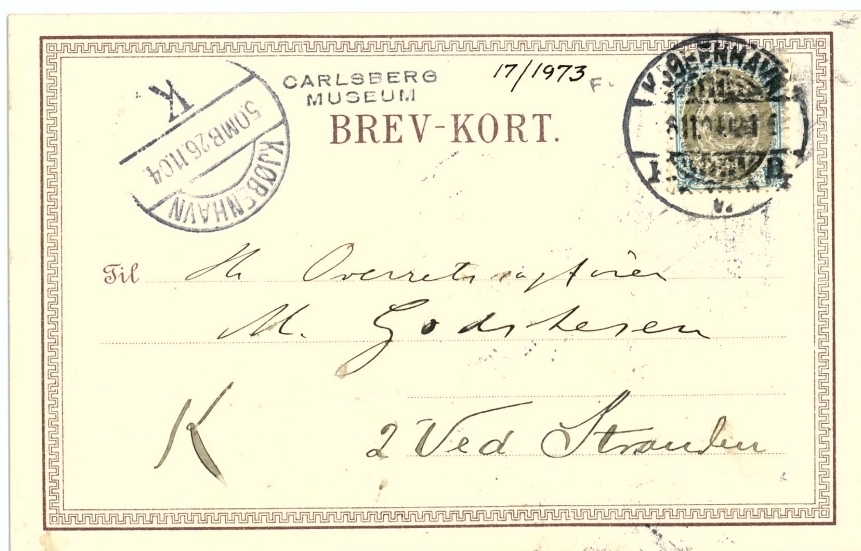 CARLSBERG
MUSEUM
17/1973
F.
BREV-KORT.
KJØBENHAVN
K
5.OMB 26.11.04
KJØBENHAVN
Til Hr Overretssagfører
M. Godskesen
K 2 Ved Stranden